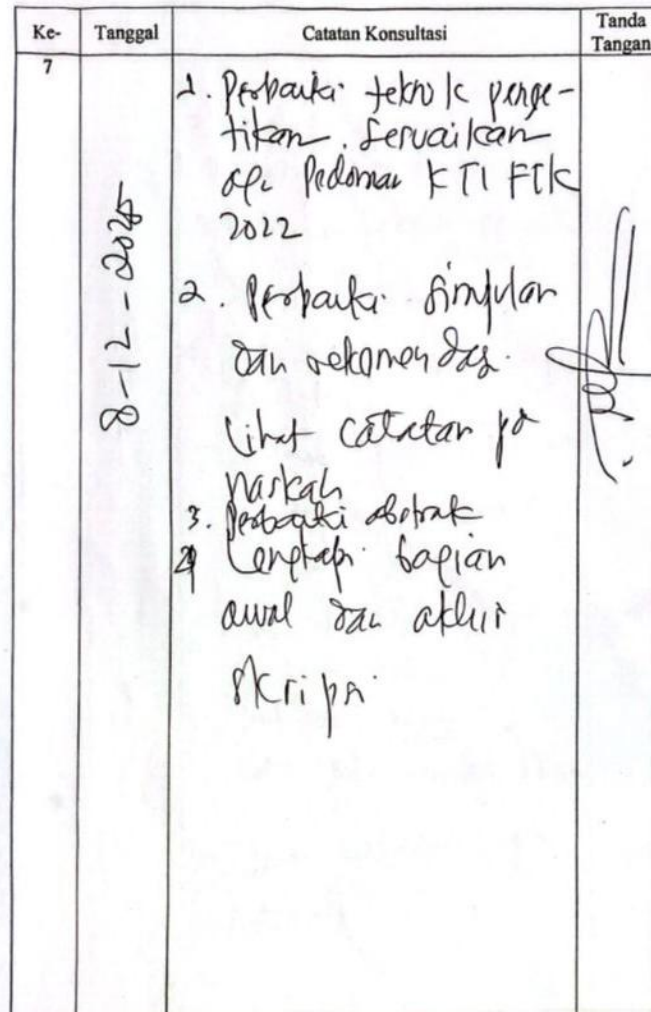 Ke-
Tanggal
Catatan Konsultasi
Tanda
Tangan
7
8-12-2025
1. Perbaiki teknik penge-
tikan. Sesuaikan
dgn Pedoman KTI FTK
2022
2. Perbaiki simpulan
dan rekomendasi.
Lihat catatan pd
naskah
3. Perbaiki abstrak
4 Lengkapi bagian
awal dan akhir
skripsi